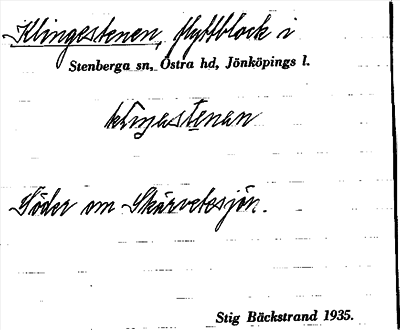 Klingestenen, flyttblock i
Stenberga sn, Östra hd, Jönköpings l.
Söder om Skärvetesjön.
Stig Bäckstrand 1935.